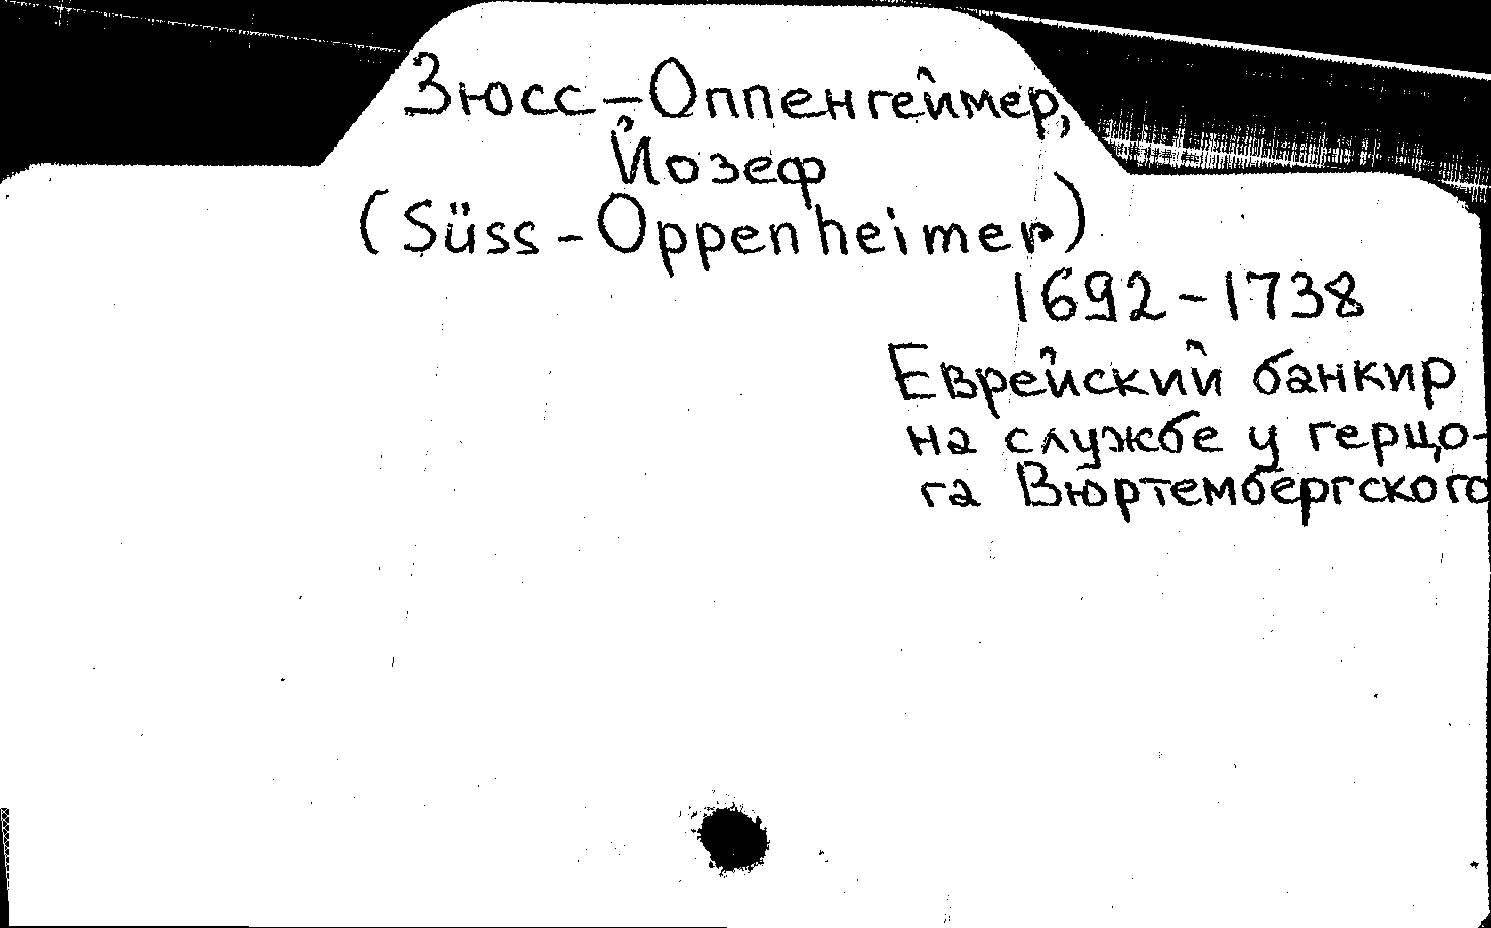 Зюсс-Оппенгеймер,
Йозеф
(Süss-Oppenheimer)
1692-1738
Еврейский банкир
на службе у герцо-
га Вюртембергского